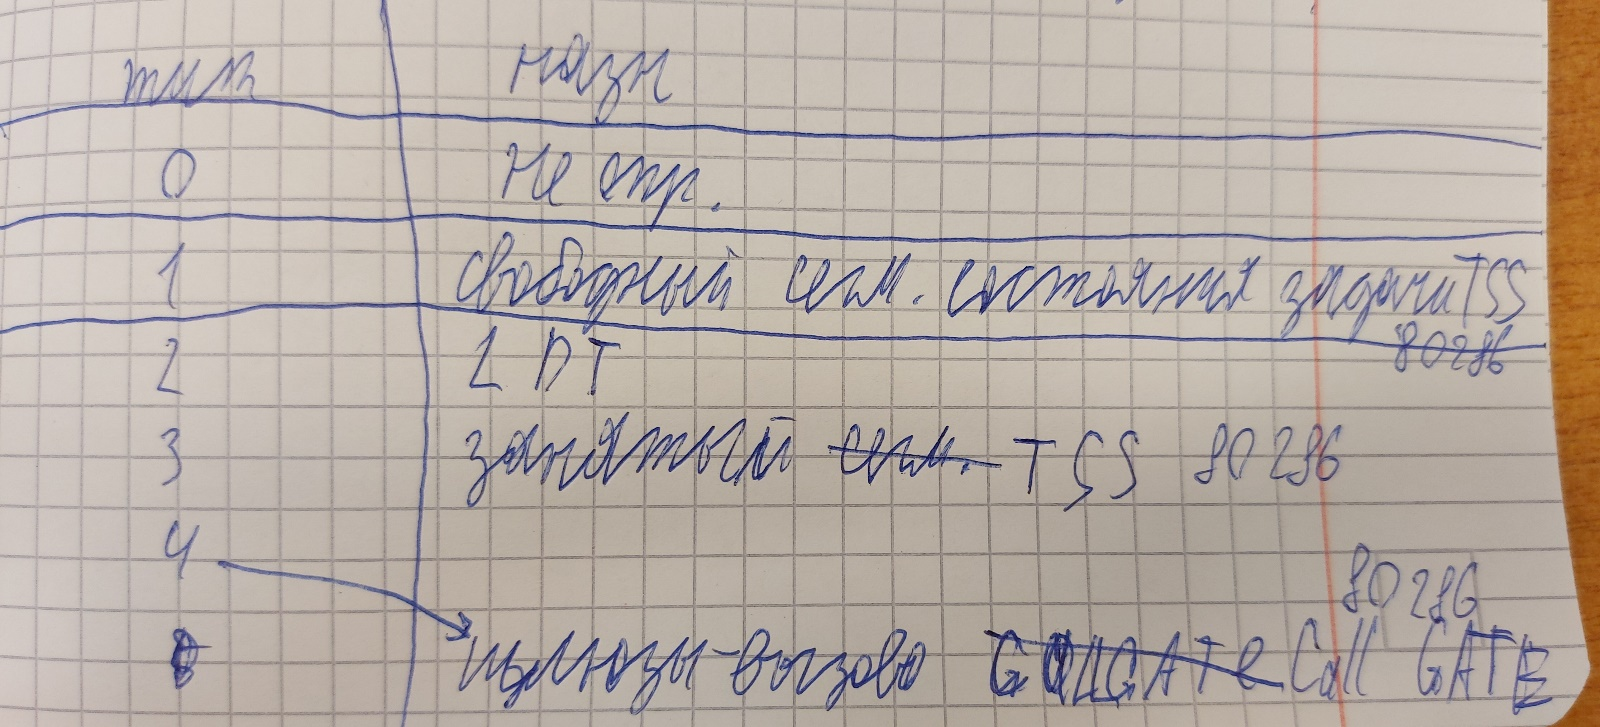 тип назн
0 не опр.
1 свободный сегм. состояния задачи TSS
80286
2 LDT
3 занятый сегм. TSS 80286
4
80286
шлюзы-вызово GCllGATE Call GATE